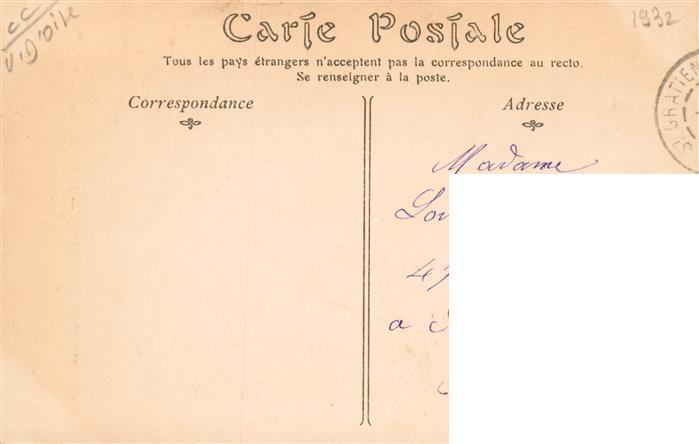 CC
V.D'OISE
1932
Carte Postale
Tous les pays étrangers n'acceptent pas la correspondance au recto.
Se renseigner à la poste.
Correspondance
Adresse
ST GRATIEN
Madame
a